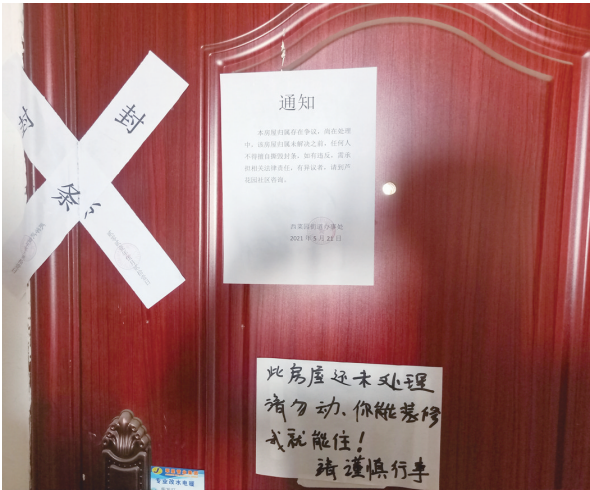 封
条
封
条
通知
本房屋归属存在争议,尚在处理
中。该房屋归属未解决之前,任何人
不得擅自撕毁封条。如有违反,需承
担相关法律责任。有异议者,请到芦
花园社区咨询。
街道办事处
2021年5月21日
此房屋还未处理
请勿动、你能装修
我就能住!
请谨慎行事
专业改水电暖